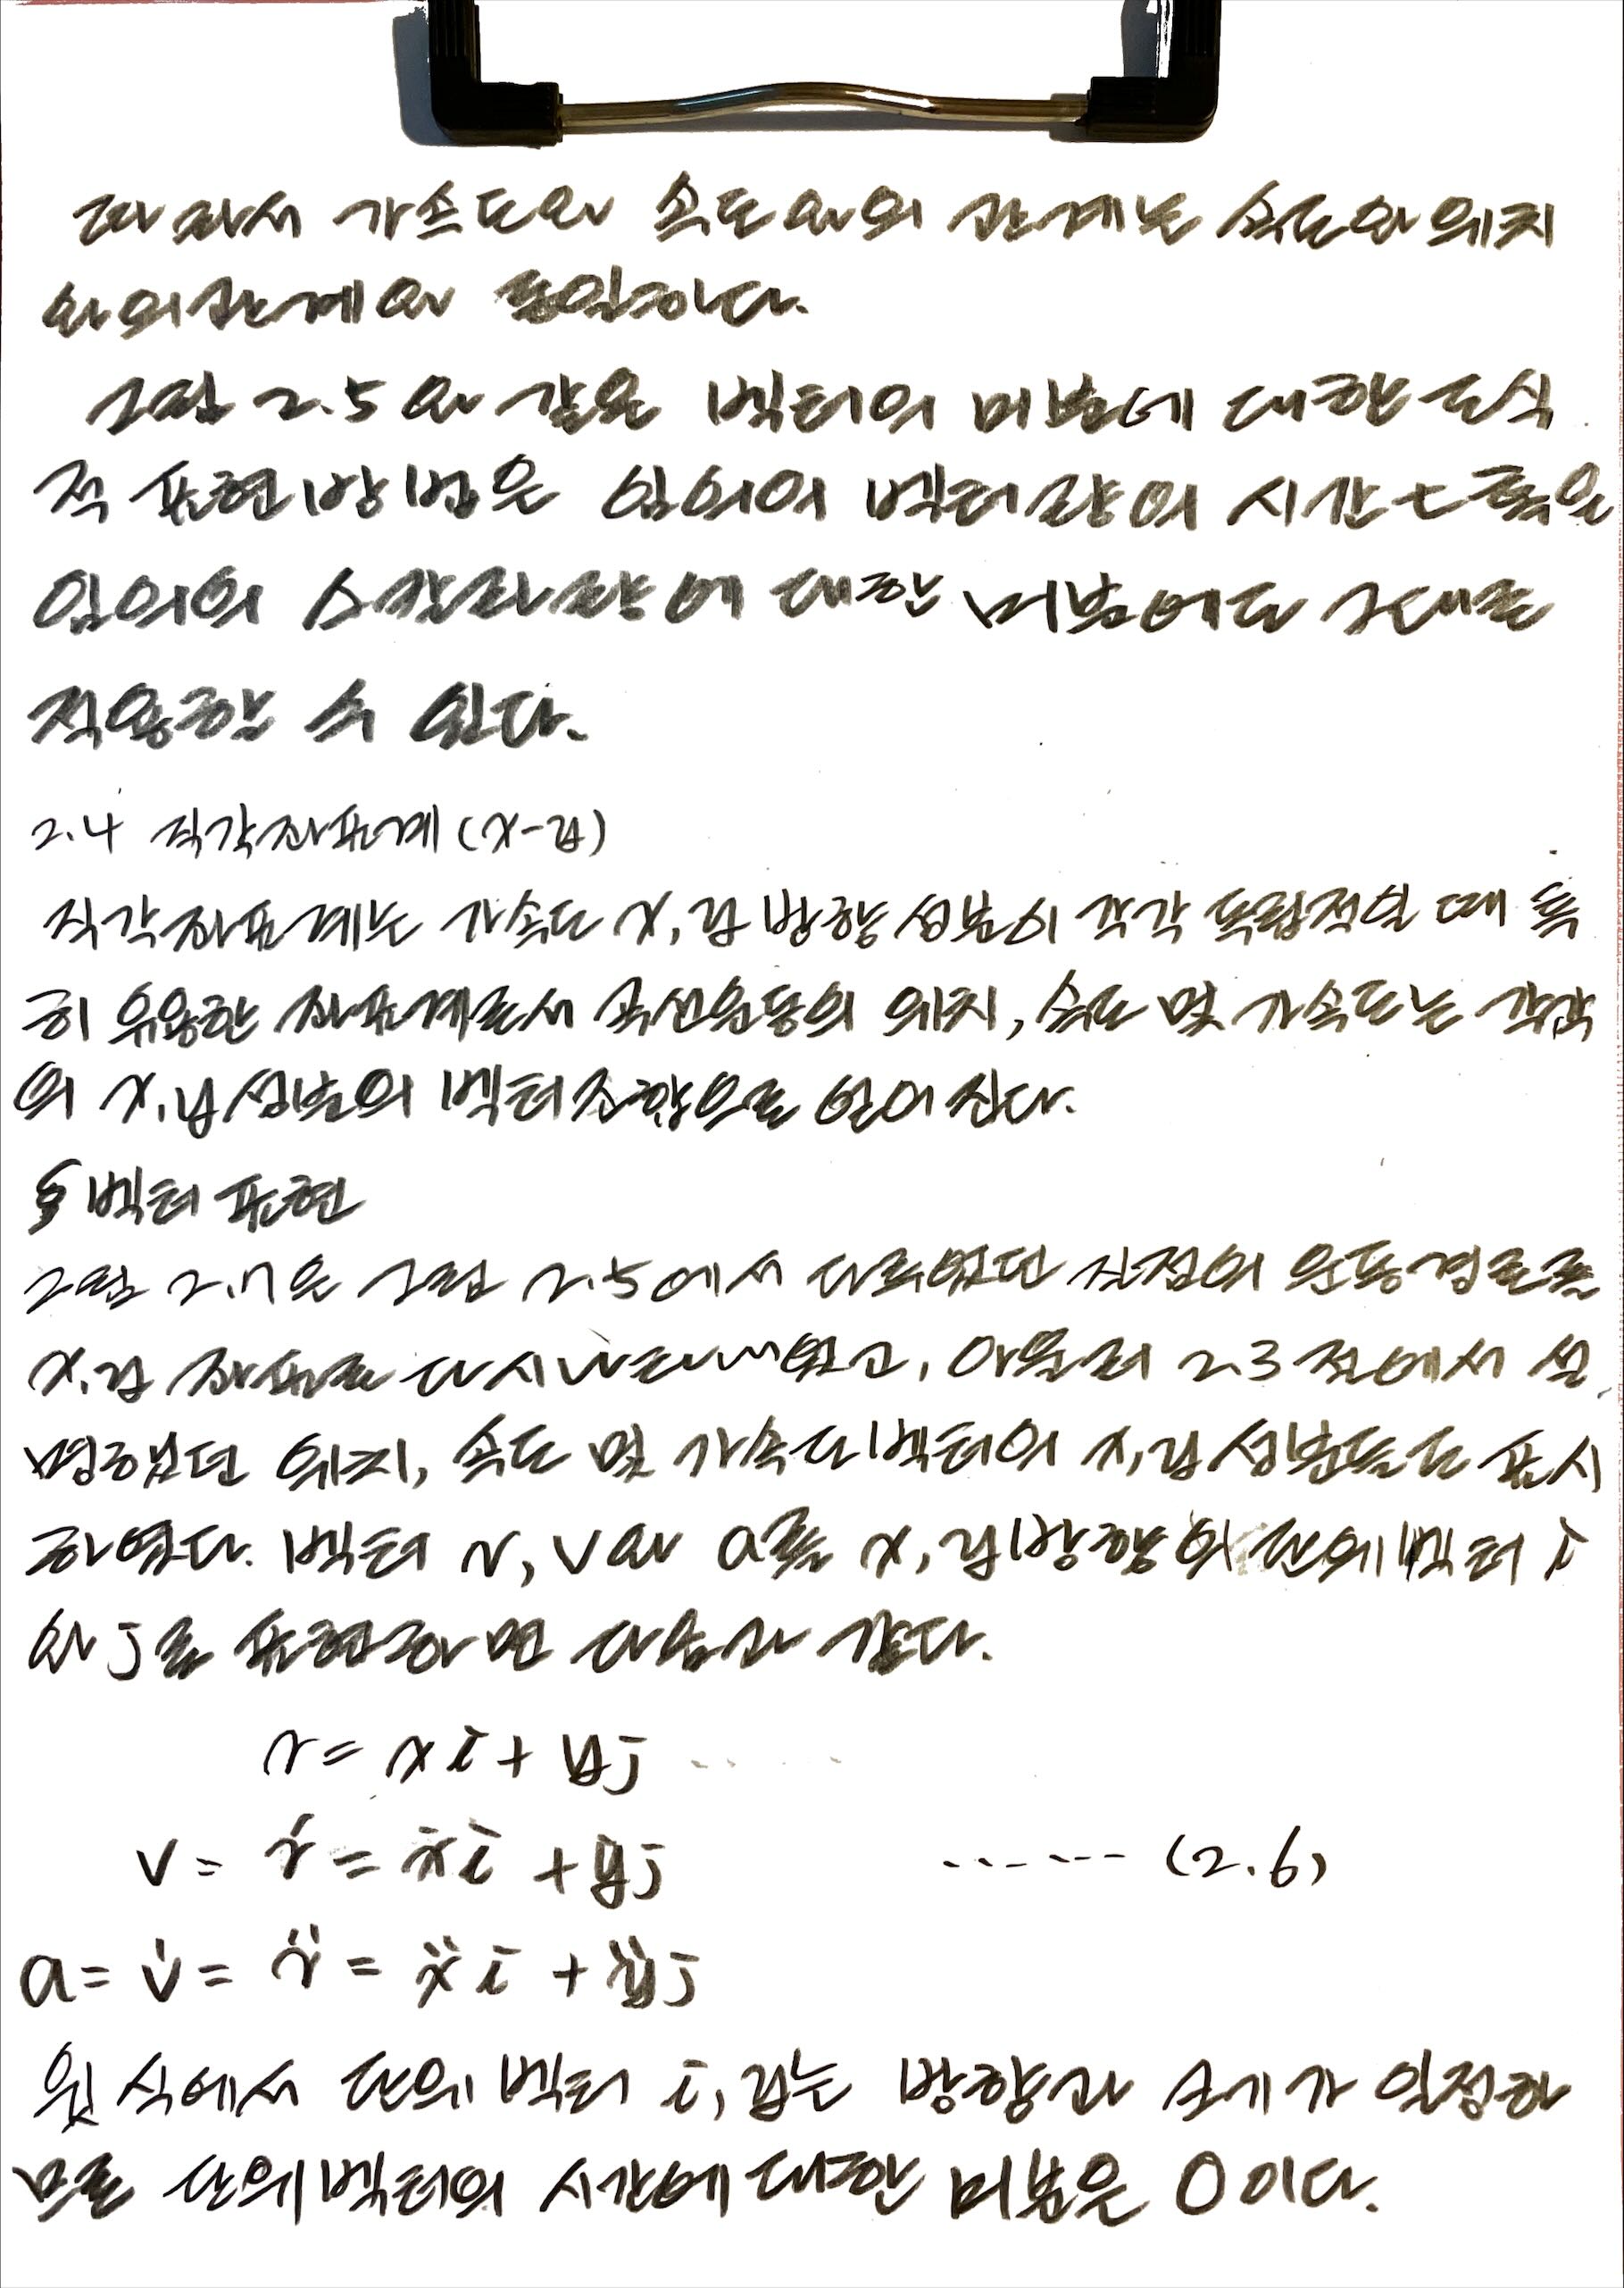 따라서 가속도와 속도와의 관계는 속도와 위치
와의 관계와 동일하다.
그림 2.5와 같은 벡터의 미분에 대한 도식
적 표현방법은 임의의 벡터량의 시간 t 혹은
임의의 스칼라량에 대한 미분에도 그대로
적용할 수 있다.
2.4 직각좌표계 (x-y)
직각좌표계는 가속도 x, y 방향 성분이 각각 독립적일 때 특
히 유용한 좌표계로서 곡선운동의 위치, 속도 및 가속도는 각각
의 x, y 성분의 벡터조합으로 얻어진다.
§ 벡터 표현
그림 2.7은 그림 2.5에서 다루었던 질점의 운동경로를
x, y 좌표로 다시 나타내었고, 아울러 2.3 절에서 설
명하였던 위치, 속도 및 가속도벡터의 x, y 성분들도 표시
하였다. 벡터 r, v와 a를 x, y방향의 단위벡터 i
와 j로 표현하면 다음과 같다.
r = xi + yj
v = ṙ = ẋi + ẏj ------ (2.6)
a = v̇ = r̈ = ẍi + ÿj
윗 식에서 단위 벡터 i, y는 방향과 크기가 일정하
므로 단위벡터의 시간에 대한 미분은 0이다.